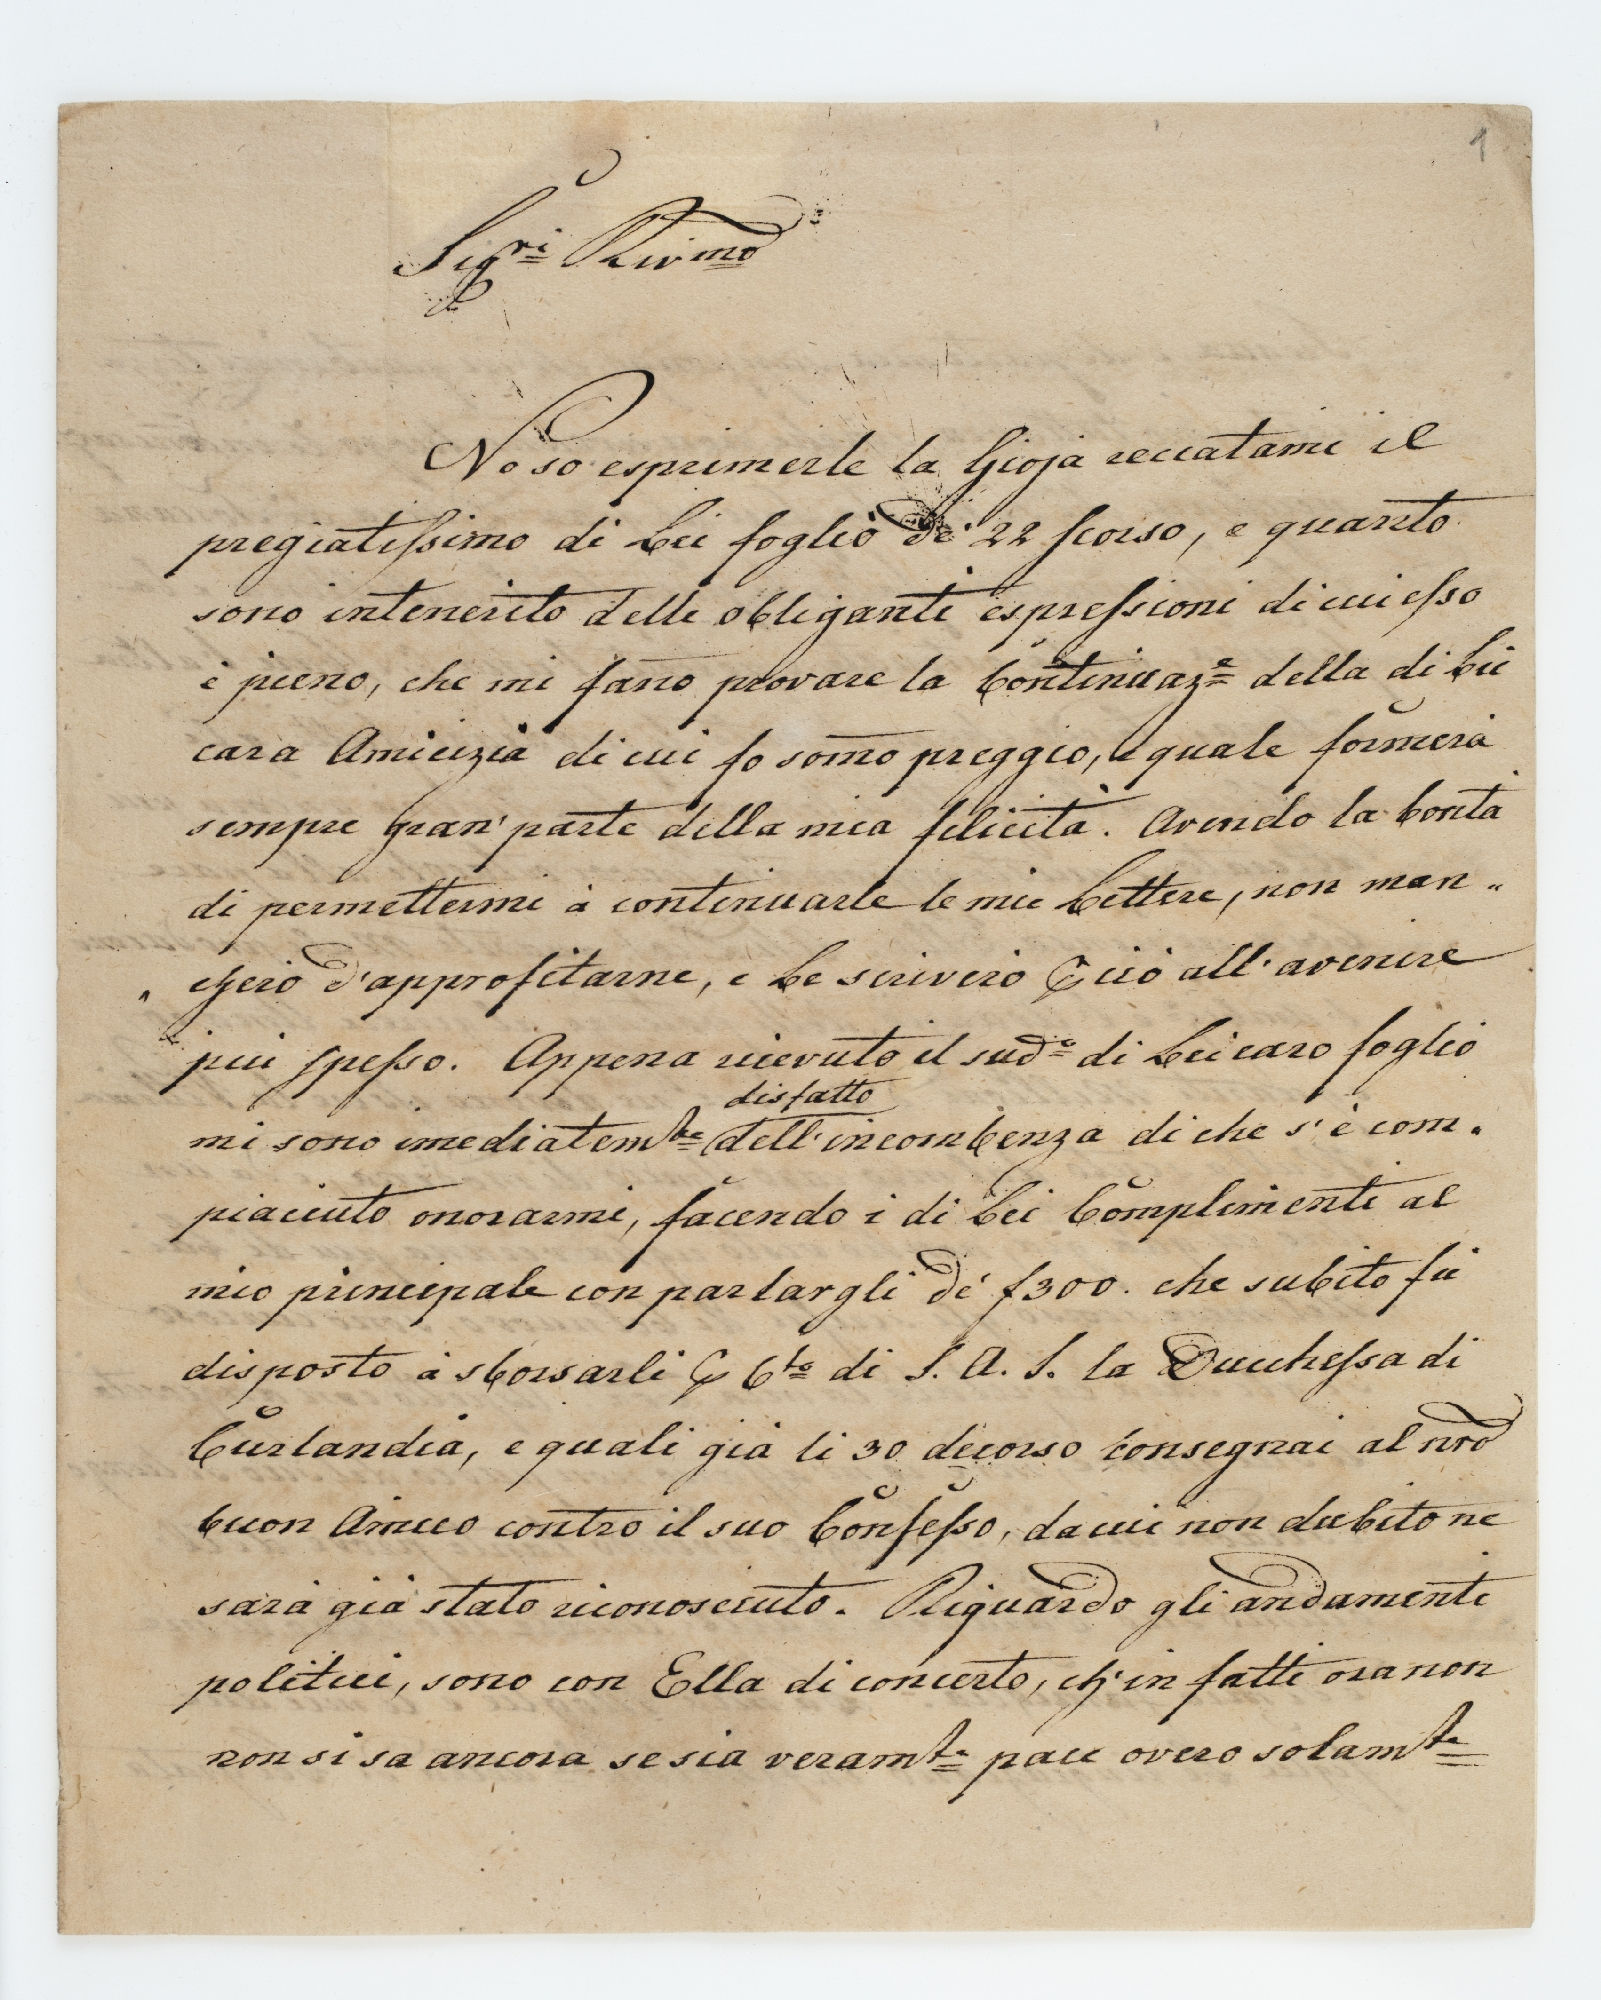 1
Sigri Rivmo
No so esprimerle la Gioja reccatami il
pregiatissimo di Lei foglio de' 22 scorso, e quanto
sono intenerito delle obliganti espressioni di cui esso
è pieno, che mi fano provare la Continuaze della di Lei
cara Amicizia di cui fo somo preggio, e quale formerà
sempre gran' parte della mia felicità. Avendo la bontà
di permettermi à continuarle le mie Lettere, non man„
„cherò d'approfitarne, e Le scriverò ciò all' avenire
più spesso. Appena ricevuto il sudo di Lei caro foglio
disfatto
mi sono imediatemte dell' incombenza di che s' è com„
piaciuto onorarmi, facendo i di Lei Complimenti al
mio principale con parlargli de' f 300. che subito fù
disposto à sborsarli Cto di S. A. S. la Ducchessa di
Curlandia, e quali già li 30 decorso consegnai al nro
buon Amico contro il suo Confesso, da cui non dubito ne
sarà già stato riconosciuto. Riguardo gli andamenti
politici, sono con Ella di concerto, ch' in fatti ora non
non si sa ancora se sia veramte pace overo solamte